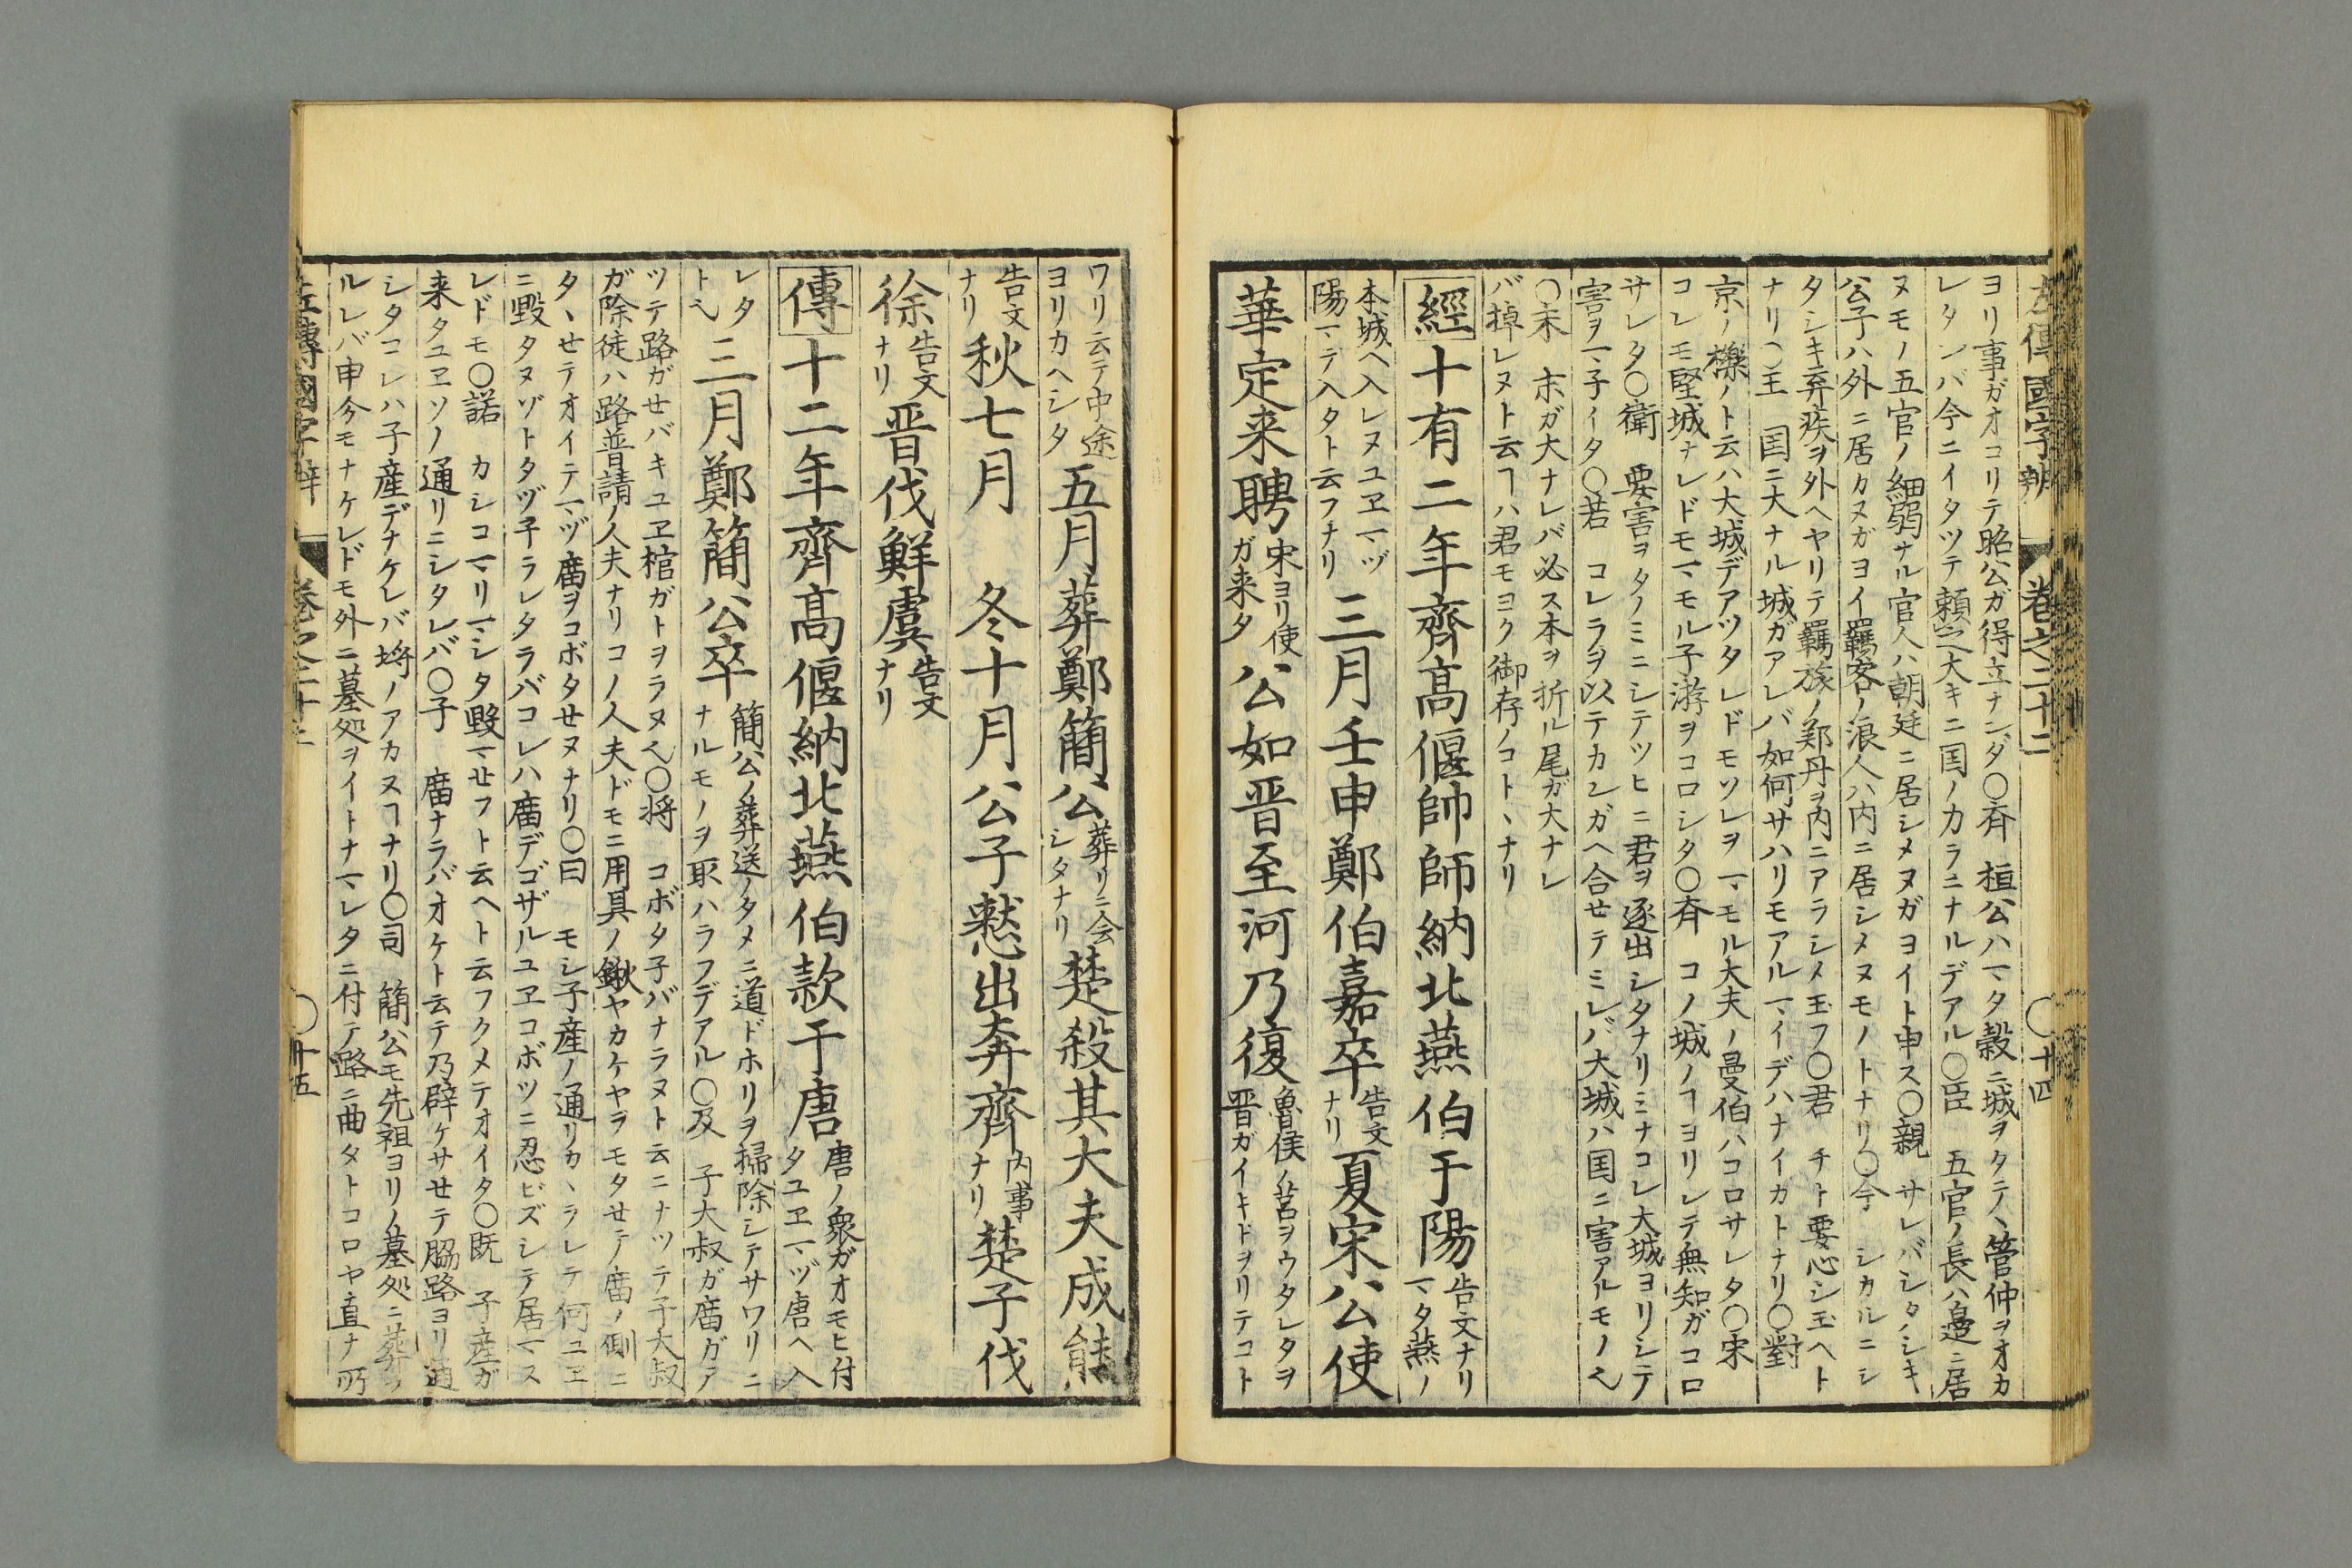 左傳國字辨 卷之二十二 〇十四
ヨリ事ガオコリテ昭公ガ得立ナンダ〇斉 桓公ハマタ穀ニ城ヲタテヽ管仲ヲオカ
レタンバ今ニイタツテ頼テ大キニ国ノカラニナルデアル〇臣 五官ノ長ハ邉ニ居
ヌモノ五官ノ細弱ナル官人ハ朝廷ニ居シメヌガヨイト申ス〇親 サレバシタノシキ
公子ハ外ニ居カヌガヨイ羈客ノ浪人ハ内ニ居シメヌモノトナリ〇今 シカルニシ
タシキ弃疾ヲ外ヘヤリテ羈旅ノ鄭丹ヲ内ニアラシメ玉フ〇君 チト要心シ玉ヘト
ナリ〇王 国ニ大ナル城ガアレバ如何サハリモアルマイデハナイカトナリ〇對
京ノ櫟ノト云ハ大城デアツタレドモソレヲマモル大夫ノ曼伯ハコロサレタ〇宋
コレモ堅城ナレドモマモル子游ヲコロシタ〇斉 コノ城ノヿヨリレテ無知ガコロ
サレタ〇衛 要害ヲタノミニシテツヒニ君ヲ逐出シタナリミナコレ大城ヨリシテ
害ヲマ子イタ〇若 コレラヲ以テカンガヘ合セテミレバ大城ハ国ニ害アルモノ也
〇末 末ガ大ナレバ必ス本ヲ折ル尾ガ大ナレ
バ掉レヌト云ヿハ君モヨク御存ノコトヽナリ
經十有二年齊高偃帥師納北燕伯于陽 告文ナリマタ燕ノ
本城ヘ入レヌユヱマヅ陽マデ入タト云フナリ 三月壬申鄭伯嘉卒 告文ナリ 夏宋公使
華定来聘 宋ヨリ使ガ来タ 公如晋至河乃復 魯侯ノ莒ヲウタレタヲ晋ガイキドヲリテコト
ワリ云テ中途ヨリカヘシタ 五月葬鄭簡公 葬リニ会シタナリ 楚殺其大夫成熊
告文ナリ 秋七月 冬十月公子憖出奔齊 内事ナリ 楚子伐
徐 告文ナリ 晋伐鮮虞 告文ナリ
傳十二年齊高偃納北燕伯款于唐 唐ノ衆ガオモヒ付タユヱマヅ唐ヘ入
レタト也 三月鄭簡公卒 簡公ノ葬送ノタメニ道ドホリヲ掃除シテサワリニナルモノヲ取ハラフデアル〇及 子大叔ガ庿ガア
ツテ路ガセバキユヱ棺ガトヲラヌ也〇将 コボタ子バナラヌト云ニナツテ子大叔
ガ除徒ハ路普請ノ人夫ナリコノ人夫ドモニ用具ノ鍬ヤカケヤラモタセテ庿ノ側ニ
タヽセテオイテマヅ庿ヲコボタセヌナリ〇曰 モシ子産ノ通リカヽラレテ何ユヱ
ニ毀タヌゾトタヅ子ラレタラバコレハ庿デゴザルユヱコボツニ忍ビズシテ居マス
レドモ〇諾 カシコマリマシタ毀マセフト云ヘト云フクメテオイタ〇既 子産ガ
来タユヱソノ通リニシタレバ〇子 庿ナラバオケト云テ乃辟ケサセテ脇路ヨリ通
シタコレハ子産デナケレバ埓ノアカヌヿナリ〇司 簡公モ先祖ヨリノ墓処ニ葬ラ
ルレバ申分モナケレドモ外ニ墓処ヲイトナマレタニ付テ路ニ曲タトコロヤ直ナ所
左傳國字辨 卷之二十二 〇十五